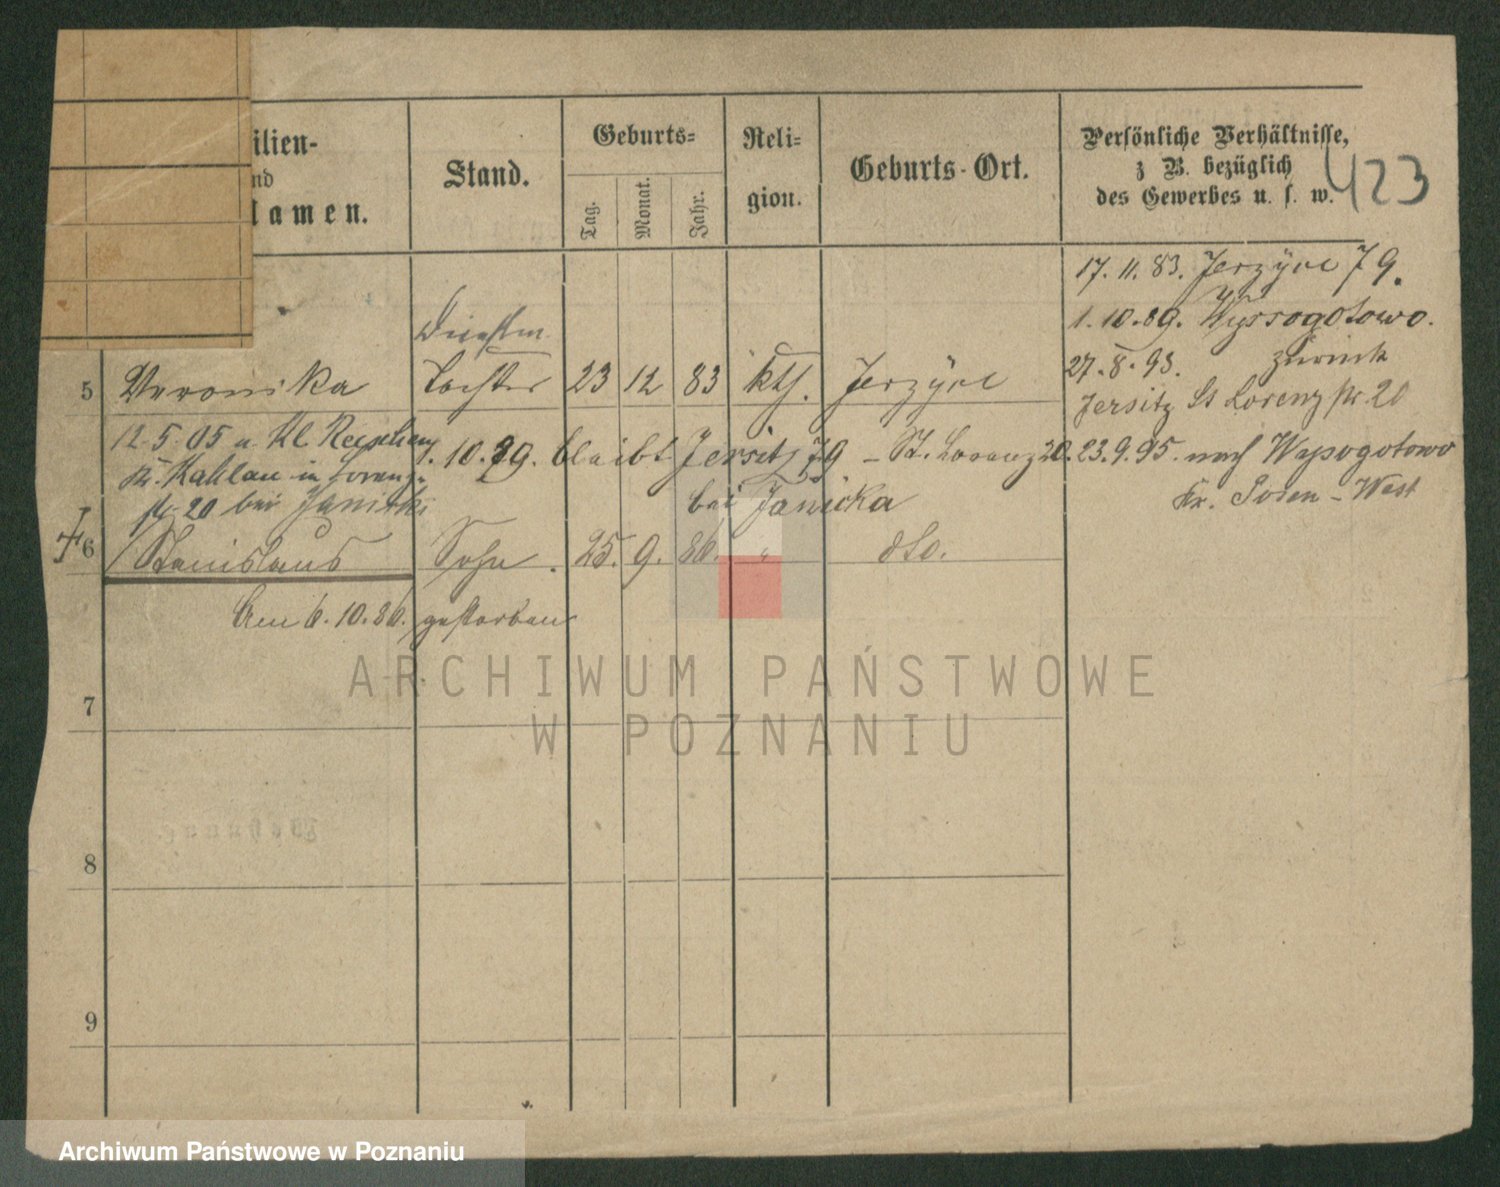 ilien-
nd
amen.
Stand.
Geburts-
Tag.
Monat.
Jahr.
Reli-
gion.
Geburts-Ort.
Persönliche Verhältnisse,
z B. bezüglich
des Gewerbes u. s. w.
423
17. 11. 83. Jerzyce 79.
1. 10. 89. Wyssogotowo.
27. 8. 93. zurück
Jersitz St Lorenzstr 20
Dienstm.
5 Veronika Tochter 23 12 83 kth. Jerzyce
12. 5. 05 n. Kl.
Kr. in Lorenz-
str. 20 bei Janicki
1. 10. 89. bleibt Jersitz 79 – St. Lorenz 20. 23. 9. 95. nach Wyssogotowo
bei Janicka Kr. Posen – West
6 Stanislaus Sohn. 25. 9. 86. " dto.
Am 6. 10. 86. gestorben
7
8
9
ARCHIWUM PAŃSTWOWE
W POZNANIU
Archiwum Państwowe w Poznaniu